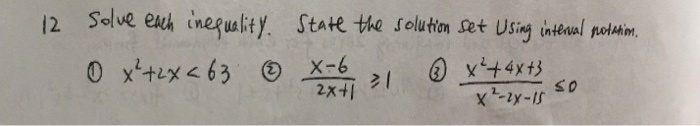 12 Solve each inequality. State the solution set Using interval notation.
① x²+2x < 63 ② (x-6)/(2x+1) ≥ 1 ③ (x²+4x+3)/(x²-2x-15) ≤ 0